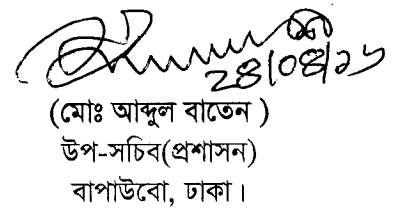 ২৪/০৪/১৬
(মোঃ আব্দুল বাতেন )
উপ-সচিব(প্রশাসন)
বাপাউবো, ঢাকা।